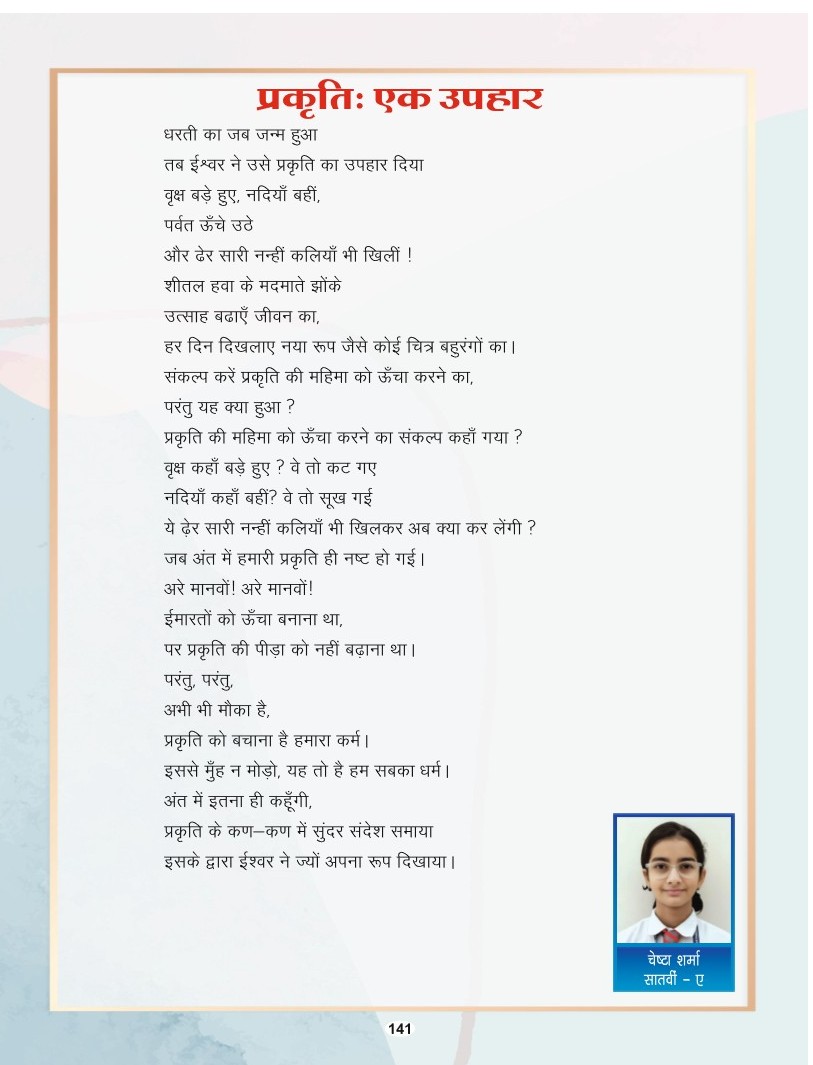 प्रकृतिः एक उपहार
धरती का जब जन्म हुआ
तब ईश्वर ने उसे प्रकृति का उपहार दिया
वृक्ष बड़े हुए, नदियाँ बहीं,
पर्वत ऊँचे उठे
और ढेर सारी नन्हीं कलियाँ भी खिलीं !
शीतल हवा के मदमाते झोंके
उत्साह बढाएँ जीवन का,
हर दिन दिखलाए नया रूप जैसे कोई चित्र बहुरंगों का।
संकल्प करें प्रकृति की महिमा को ऊँचा करने का,
परंतु यह क्या हुआ ?
प्रकृति की महिमा को ऊँचा करने का संकल्प कहाँ गया ?
वृक्ष कहाँ बड़े हुए ? वे तो कट गए
नदियाँ कहाँ बहीं? वे तो सूख गई
ये ढ़ेर सारी नन्हीं कलियाँ भी खिलकर अब क्या कर लेंगी ?
जब अंत में हमारी प्रकृति ही नष्ट हो गई।
अरे मानवों! अरे मानवों!
ईमारतों को ऊँचा बनाना था,
पर प्रकृति की पीड़ा को नहीं बढ़ाना था।
परंतु, परंतु,
अभी भी मौका है,
प्रकृति को बचाना है हमारा कर्म।
इससे मुँह न मोड़ो, यह तो है हम सबका धर्म।
अंत में इतना ही कहूँगी,
प्रकृति के कण–कण में सुंदर संदेश समाया
इसके द्वारा ईश्वर ने ज्यों अपना रूप दिखाया।
चेष्टा शर्मा
सातवीं - ए
141